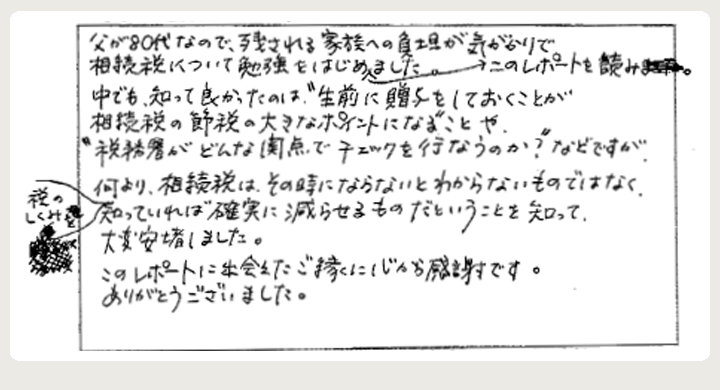 父が80代なので、残される家族への負担が気がかりで
相続税について勉強をはじめました。→このレポートを読み
中でも、知って良かったのは、"生前に贈与をしておくことが
相続税の節税の大きなポイントになる"ことや、
"税務署がどんな関点でチェックを行なうのか?"などですが、
何より、相続税は、その時にならないとわからないものではなく、
税の
しくみを
知っていれば確実に減らせるものだということを知って、
大変安堵しました。
このレポートに出会えたご縁に心から感謝です。
ありがとうございました。